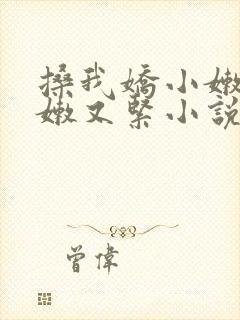 搡我嬌小嫩
嫩又緊小說
曾偉